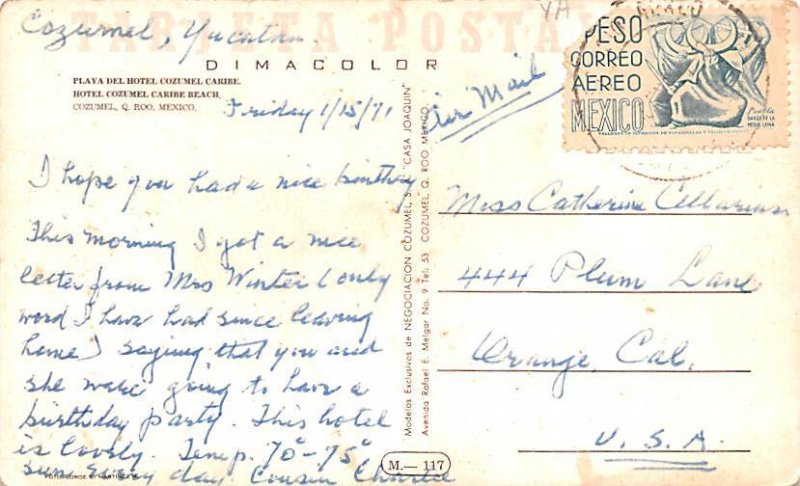 TARJETA POSTAL
Cozumel, Yucatan
DIMACOLOR
PLAYA DEL HOTEL COZUMEL CARIBE.
HOTEL COZUMEL CARIBE BEACH.
COZUMEL, Q. ROO, MEXICO.
Friday 1/15/71
I hope you had a nice birthday
This morning I got a nice
letter from Mrs Winter (only
word I have had since leaving
home) saying that you and
she were going to have a
birthday party. This hotel
is lovely. Temp. 70°-75°
sun every day Cousin Charlie
M.— 117
Modelos Exclusivos de NEGOCIACION COZUMEL, S. "CASA JOAQUIN"
Avenida Rafael E. Melgar No. 9 Tel: 53 COZUMEL, Q. ROO MEXICO.
Air Mail
1 PESO
CORREO
AEREO
MEXICO
Puebla
DANZA DE LA
MEDIA LUNA
MEXICO
Miss Catherine
444 Plum Lane
Orange, Cal.
U.S.A.